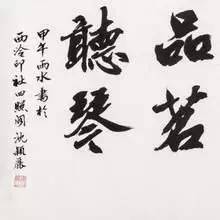 品茗
聽琴
甲午雨水書於
西泠印社四照閣沈穎麗